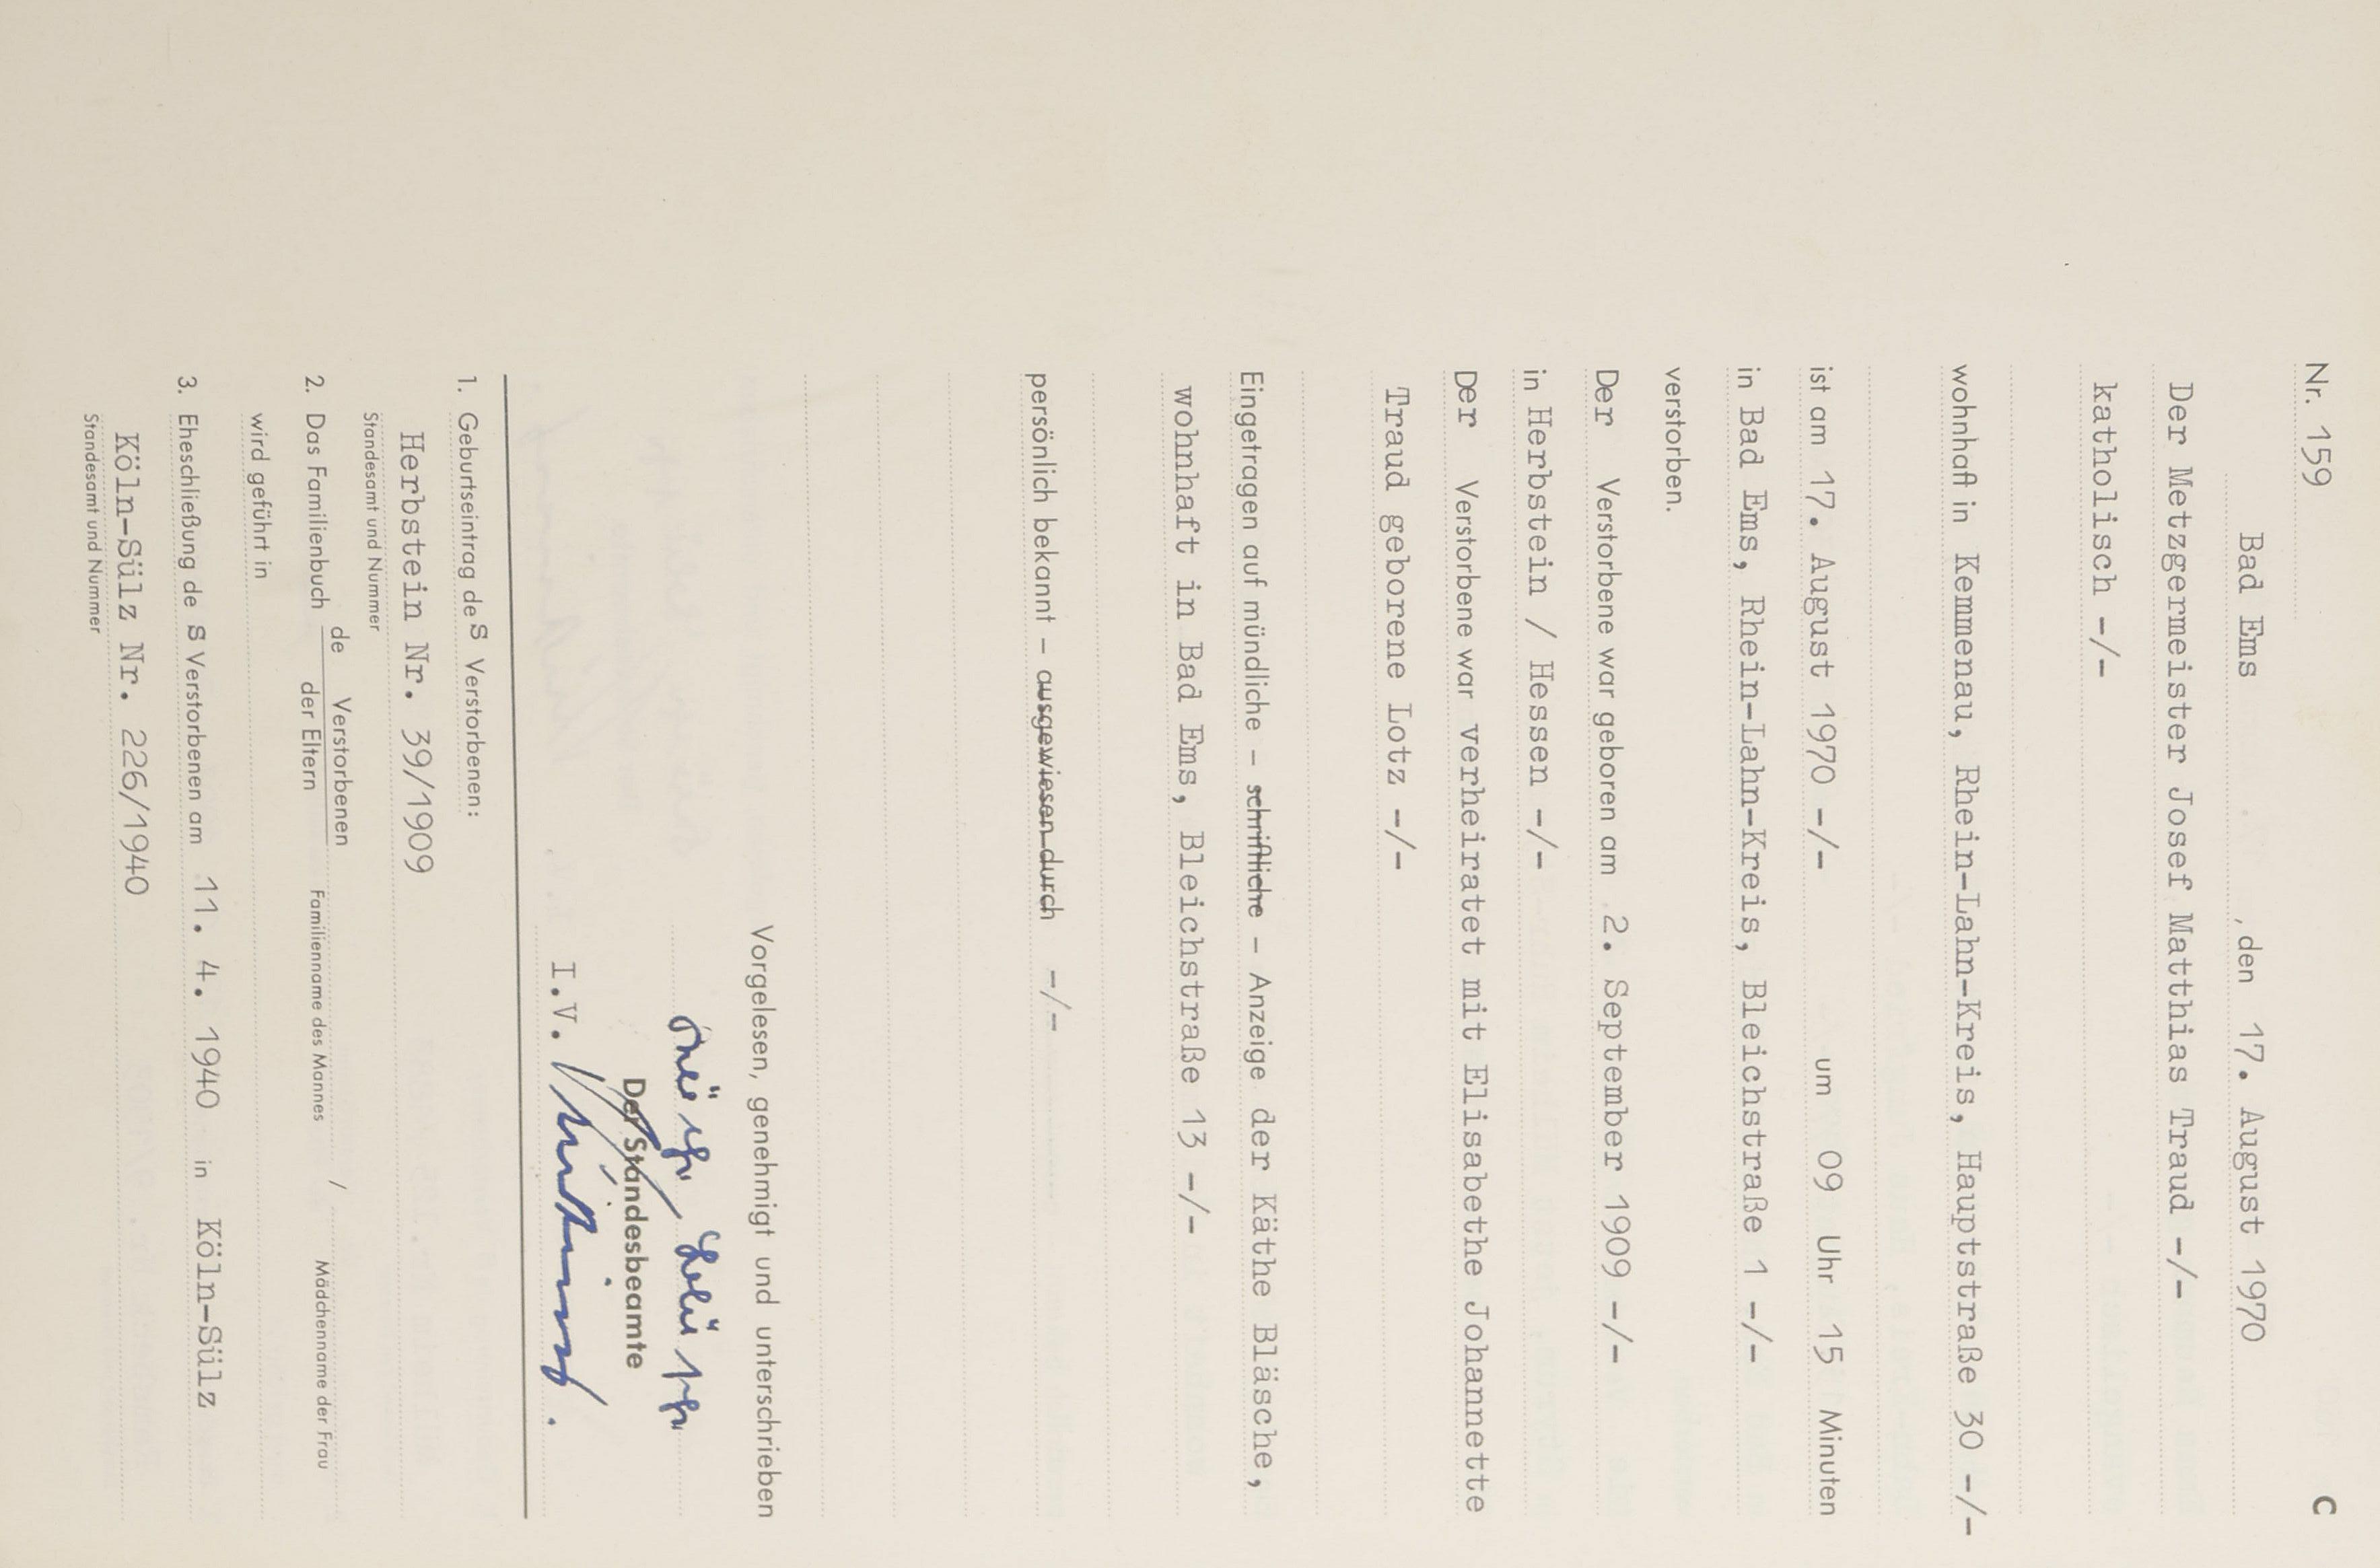 Nr. 159
C
Bad Ems , den 17. August 1970
Der Metzgermeister Josef Matthias Traud -/-
katholisch -/-
wohnhaft in Kemmenau, Rhein-Lahn-Kreis, Hauptstraße 30 -/-
ist am 17. August 1970 -/- um 09 Uhr 15 Minuten
in Bad Ems, Rhein-Lahn-Kreis, Bleichstraße 1 -/-
verstorben.
Der Verstorbene war geboren am 2. September 1909 -/-
in Herbstein / Hessen -/-
Der Verstorbene war verheiratet mit Elisabethe Johannette
Traud geborene Lotz -/-
Eingetragen auf mündliche – schriftliche – Anzeige der Käthe Bläsche,
wohnhaft in Bad Ems, Bleichstraße 13 -/-
persönlich bekannt – ausgewiesen durch -/-
Vorgelesen, genehmigt und unterschrieben
Der Standesbeamte
I.V.
1. Geburtseintrag des Verstorbenen:
Herbstein Nr. 39/1909
Standesamt und Nummer
2. Das Familienbuch de Verstorbenen
der Eltern
Familienname des Mannes / Mädchenname der Frau
wird geführt in
3. Eheschließung des Verstorbenen am 11. 4. 1940 in Köln-Sülz
Köln-Sülz Nr. 226/1940
Standesamt und Nummer